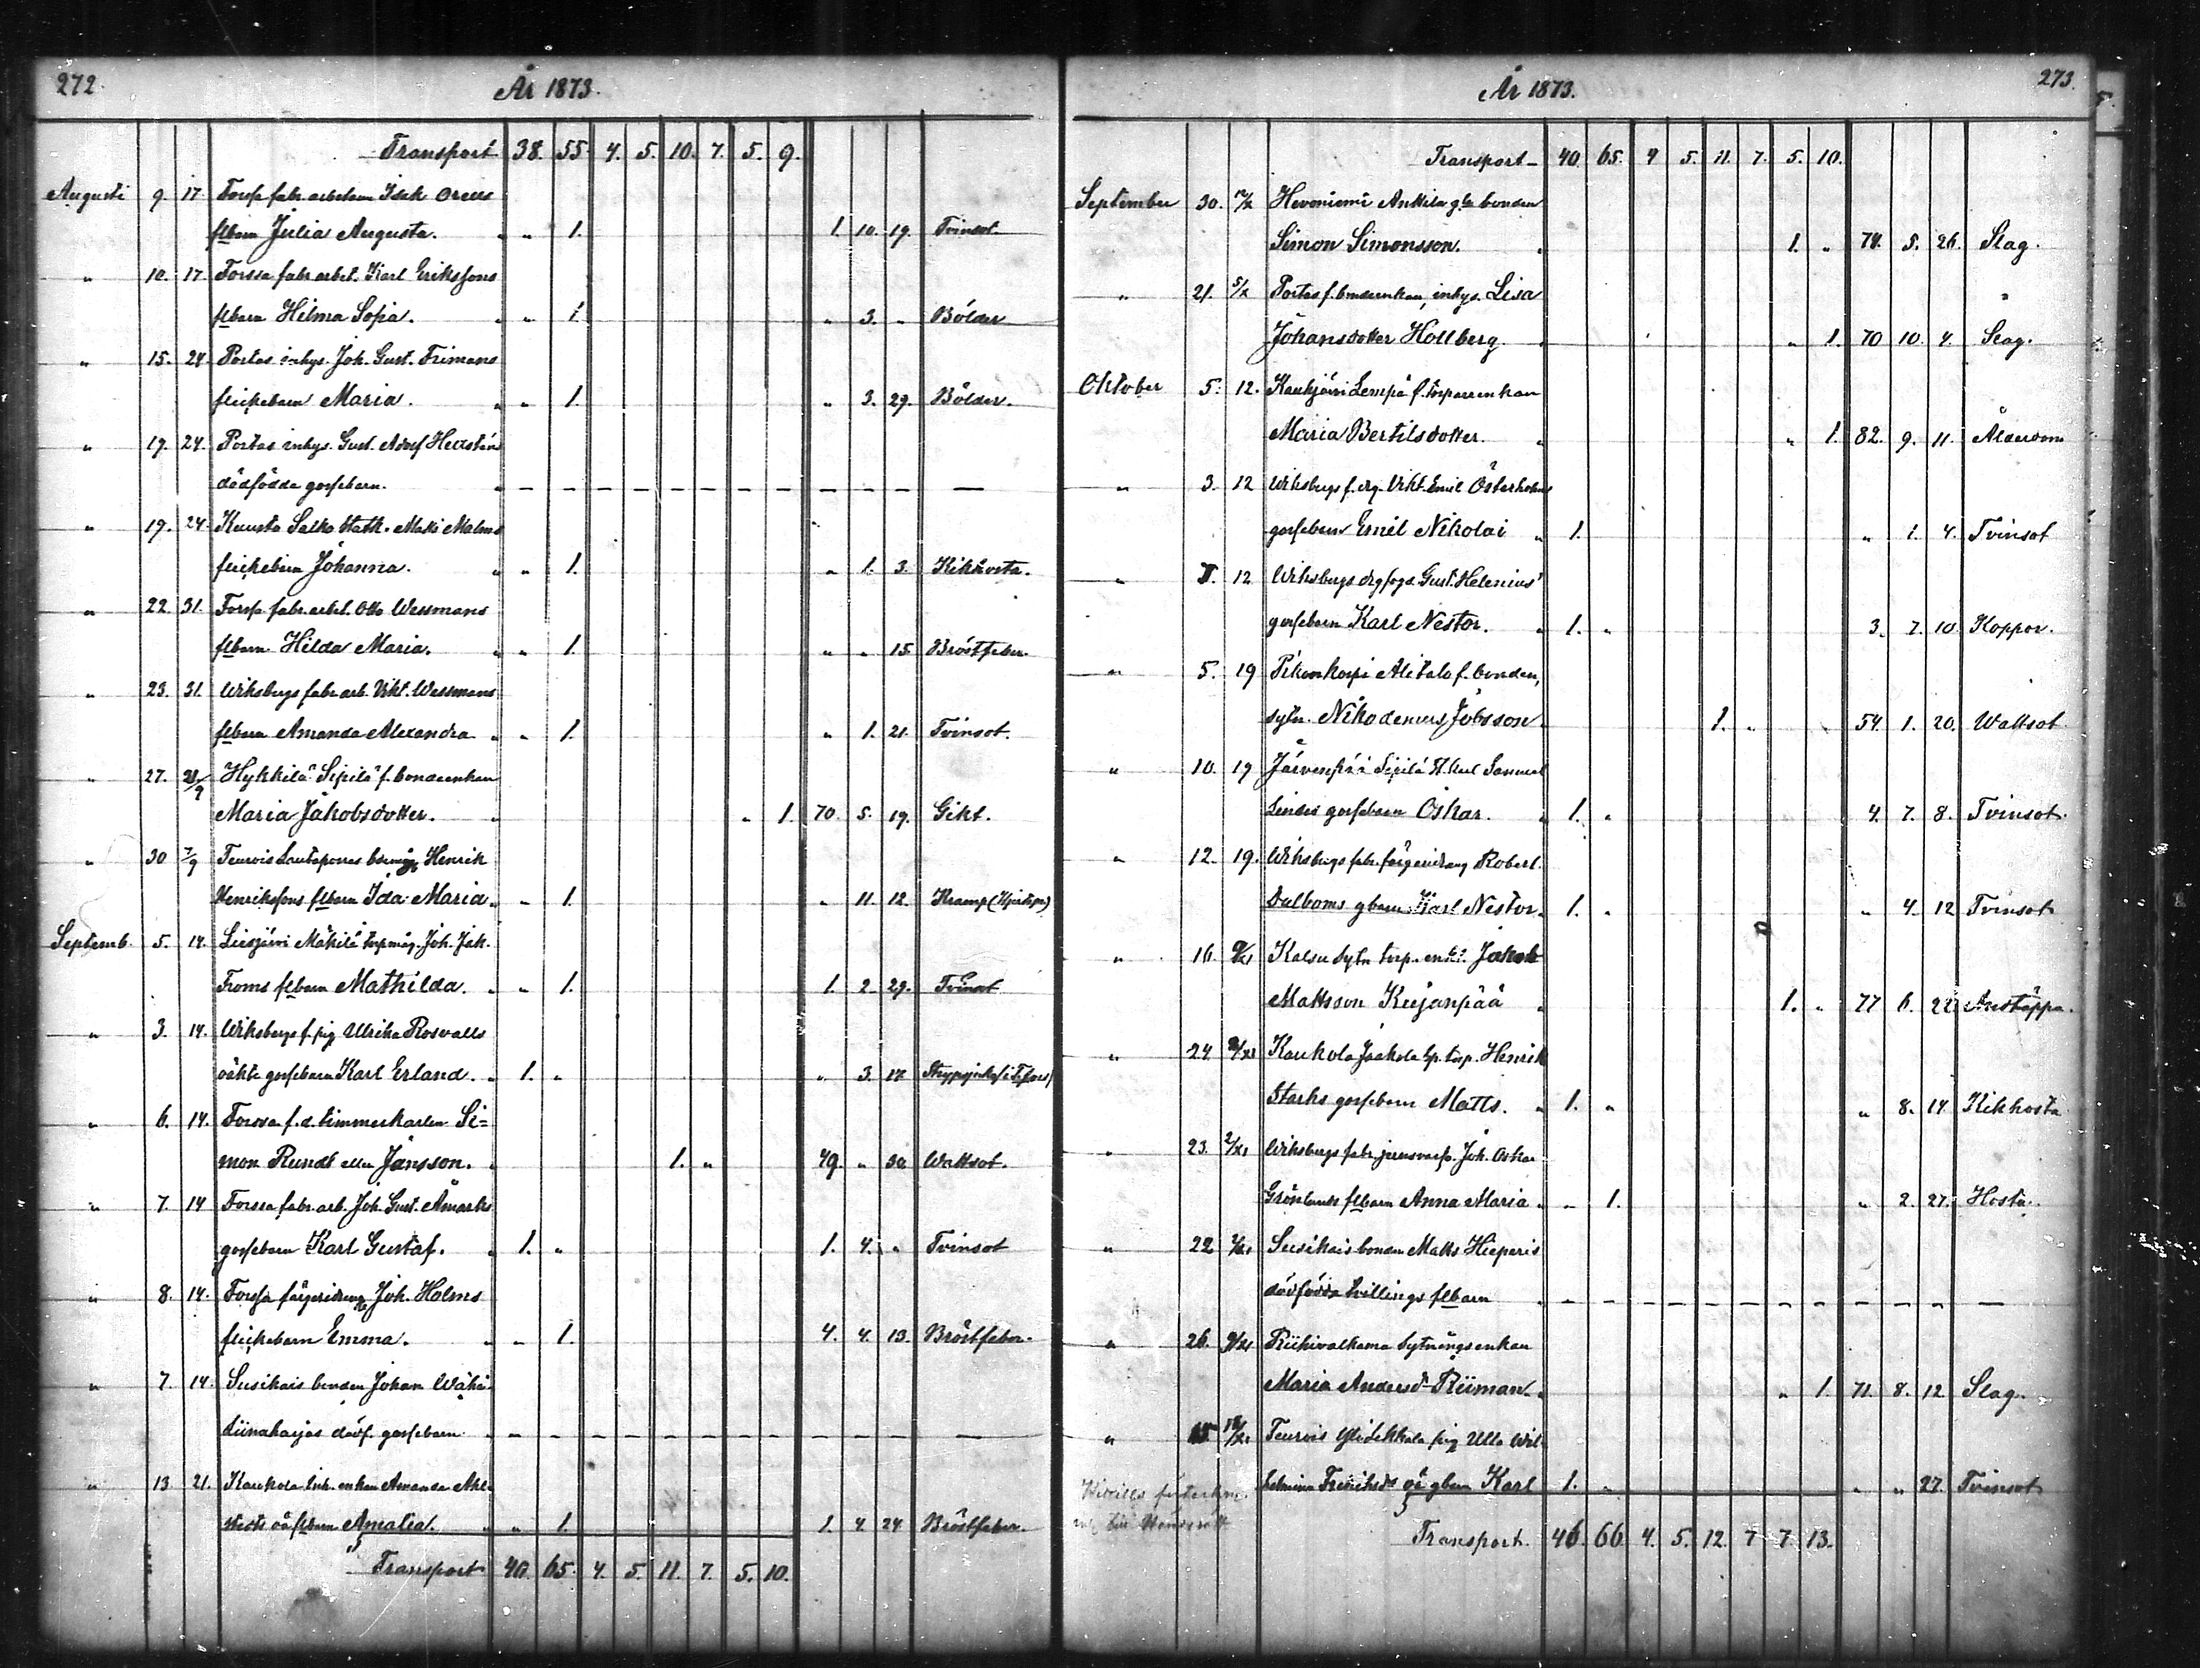 272. År 1873.
Transport 38. 55. 4. 5. 10. 7. 5. 9.
Augusti 9. 17. Forssa fabr. arbetaren Isak
flbarn Julia Augusta. " " 1. 1. 10. 19. Tvinsot.
" 10. 17. Forssa fabr. arbet. Karl Erikssons
flbarn Hilma Sofia. " " 1. " 3. " Bölder
" 15. 24. Portas inhys. Joh. Gust. Frimans
flickebarn Maria. " " 1. " 3. 29. Bölder.
" 19. 24. Portas inhys. Gust. Adolf
dödfödda gossebarn. " – – – – – – – – – – – –
" 19. 24. Kuusto Salko Matts Malms
flickebarn Johanna. " " 1. " 1. 3. Kikhosta.
" 22. 31. Forssa fabr. arbet. Otto Wessmans
flbarn Hilda Maria. " " 1. " " 15. Bröstfeber.
" 23. 31. Wiksbergs fabr. arb. Vikt. Wessmans
flbarn Amanda Alexandra " " 1. " 1. 21. Tvinsot.
" 27. Hykkilä Sipilä f. bondeenkan
Maria Jakobsdotter. " " 1. 70. 5. 19. Gikt.
" 30 7/9 Teurois Henrik
Henrikssons flbarn Ida Maria. " " 1. " 11. 12. Kramp
Septemb. 5. 14. Liesjärvi Mäkilä torpmåg. Joh. Jak.
Froms flbarn Mathilda. " " 1. 1. 2. 29. Tvinsot
" 3. 14. Wiksbergs f. pig. Ulrika Rosvalls
oäkta gossebarn Karl Erland. " 1. " " 3. 17.
" 6. 14. Forssa f. d. timmerkarlen Si=
mon Rundt eller Jansson. " 1. " 49. " 30. Wattsot.
" 7. 14 Forssa fabr. arb. Joh. Gust. Åmarks
gossebarn Karl Gustaf. " 1. " 1. 4. " Tvinsot
" 8. 14. Forssa färgeridreng Joh. Holms
flickebarn Emma. " " 1. 4. 4. 13. Bröstfeber.
" 7. 14. Susikais bonden Johan Wähä
gossebarn " – – – – – – – – – – – –
" 13 21. Kaukola inh. enkan Amanda
oä flbarn Amalia. " " 1. 1. 4. 24 Bröstfeber.
Transport 40. 65. 4. 5. 11. 7. 5. 10.
År 1873. 273.
Transport 40. 65. 4 5. 11. 7. 5. 10.
September 30. Hevoniemi Anttila gla bonden
Simon Simonsson. " 1. " 78. 5. 26. Slag.
" 21. 5/X Portas f. bondeenkan, inhys. Lisa "
Johansdotter Hollberg. " " 1. 70 10. 4. Slag.
Oktober 5. 12. Kaukjärvi Lempä f. torparenkan
Maria Bertilsdotter. " " 1. 82. 9. 11. Ålderdom
" 3. 12 Wiksbergs f. drg. Vikt. Emil Österholms
gossebarn Emil Nikolai " 1. " 1. 4. Tvinsot
" 12 Wiksbergs Gust. Helenius'
gossebarn Karl Nestor. " 1. " 3. 7. 10. Koppor.
" 5. 19 Pikonkorpi Alitalo f. bonden,
sytn. Nikodemus Jobsson. 1. " 54. 1. 20. Wattsot
" 10. 19 Järvenpää Sipilä Samuel
Lindes gossebarn Oskar. " 1. " 4. 7. 8. Tvinsot.
" 12. 19. Wiksbergs fabr. färgeridreng Robert
Dalboms gbarn Karl Nestor. 1. " " 4. 12 Tvinsot
" 16. Kalsu sytn. torp. enkl. Jakob
Mattsson Kujanpää " 1. " 77 6. 22
" 24. Kaukola Jaakola torp. Henrik
Starks gossebarn Matts. " 1. " " 8. 14. Kikhosta
" 23. 2/XI Wiksbergs fabr. Joh. Oskar
Grönlunds flbarn Anna Maria " " 1. " 2. 27. Hosta.
" 22 Susikais bonden Matts Hieperis
dödfödda tvillings flbarn " – – – – – – – – – – – –
" 26. Riihivalkama sytningsenkan
Maria Andersdr Riiman. " " 1. 71. 8. 12 Slag.
" Teurois pig. Ulla Wil-
helmina oä gbarn Karl 1. " " " 27. Tvinsot
Transport. 46. 66. 4. 5. 12. 7 7. 13.